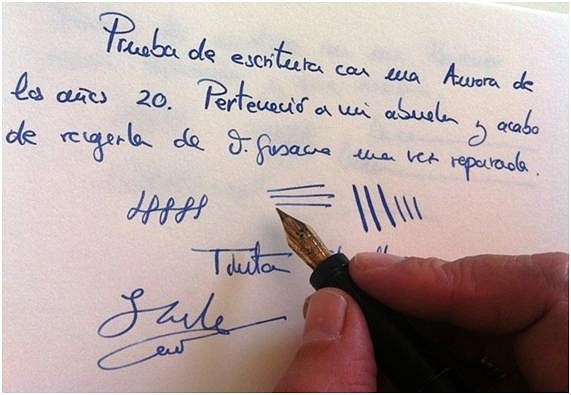 Prueba de escritura con una Aurora de
los años 20. Perteneció a mi abuela y acabo
de recogerla de D. una vez reparada.
Tinta